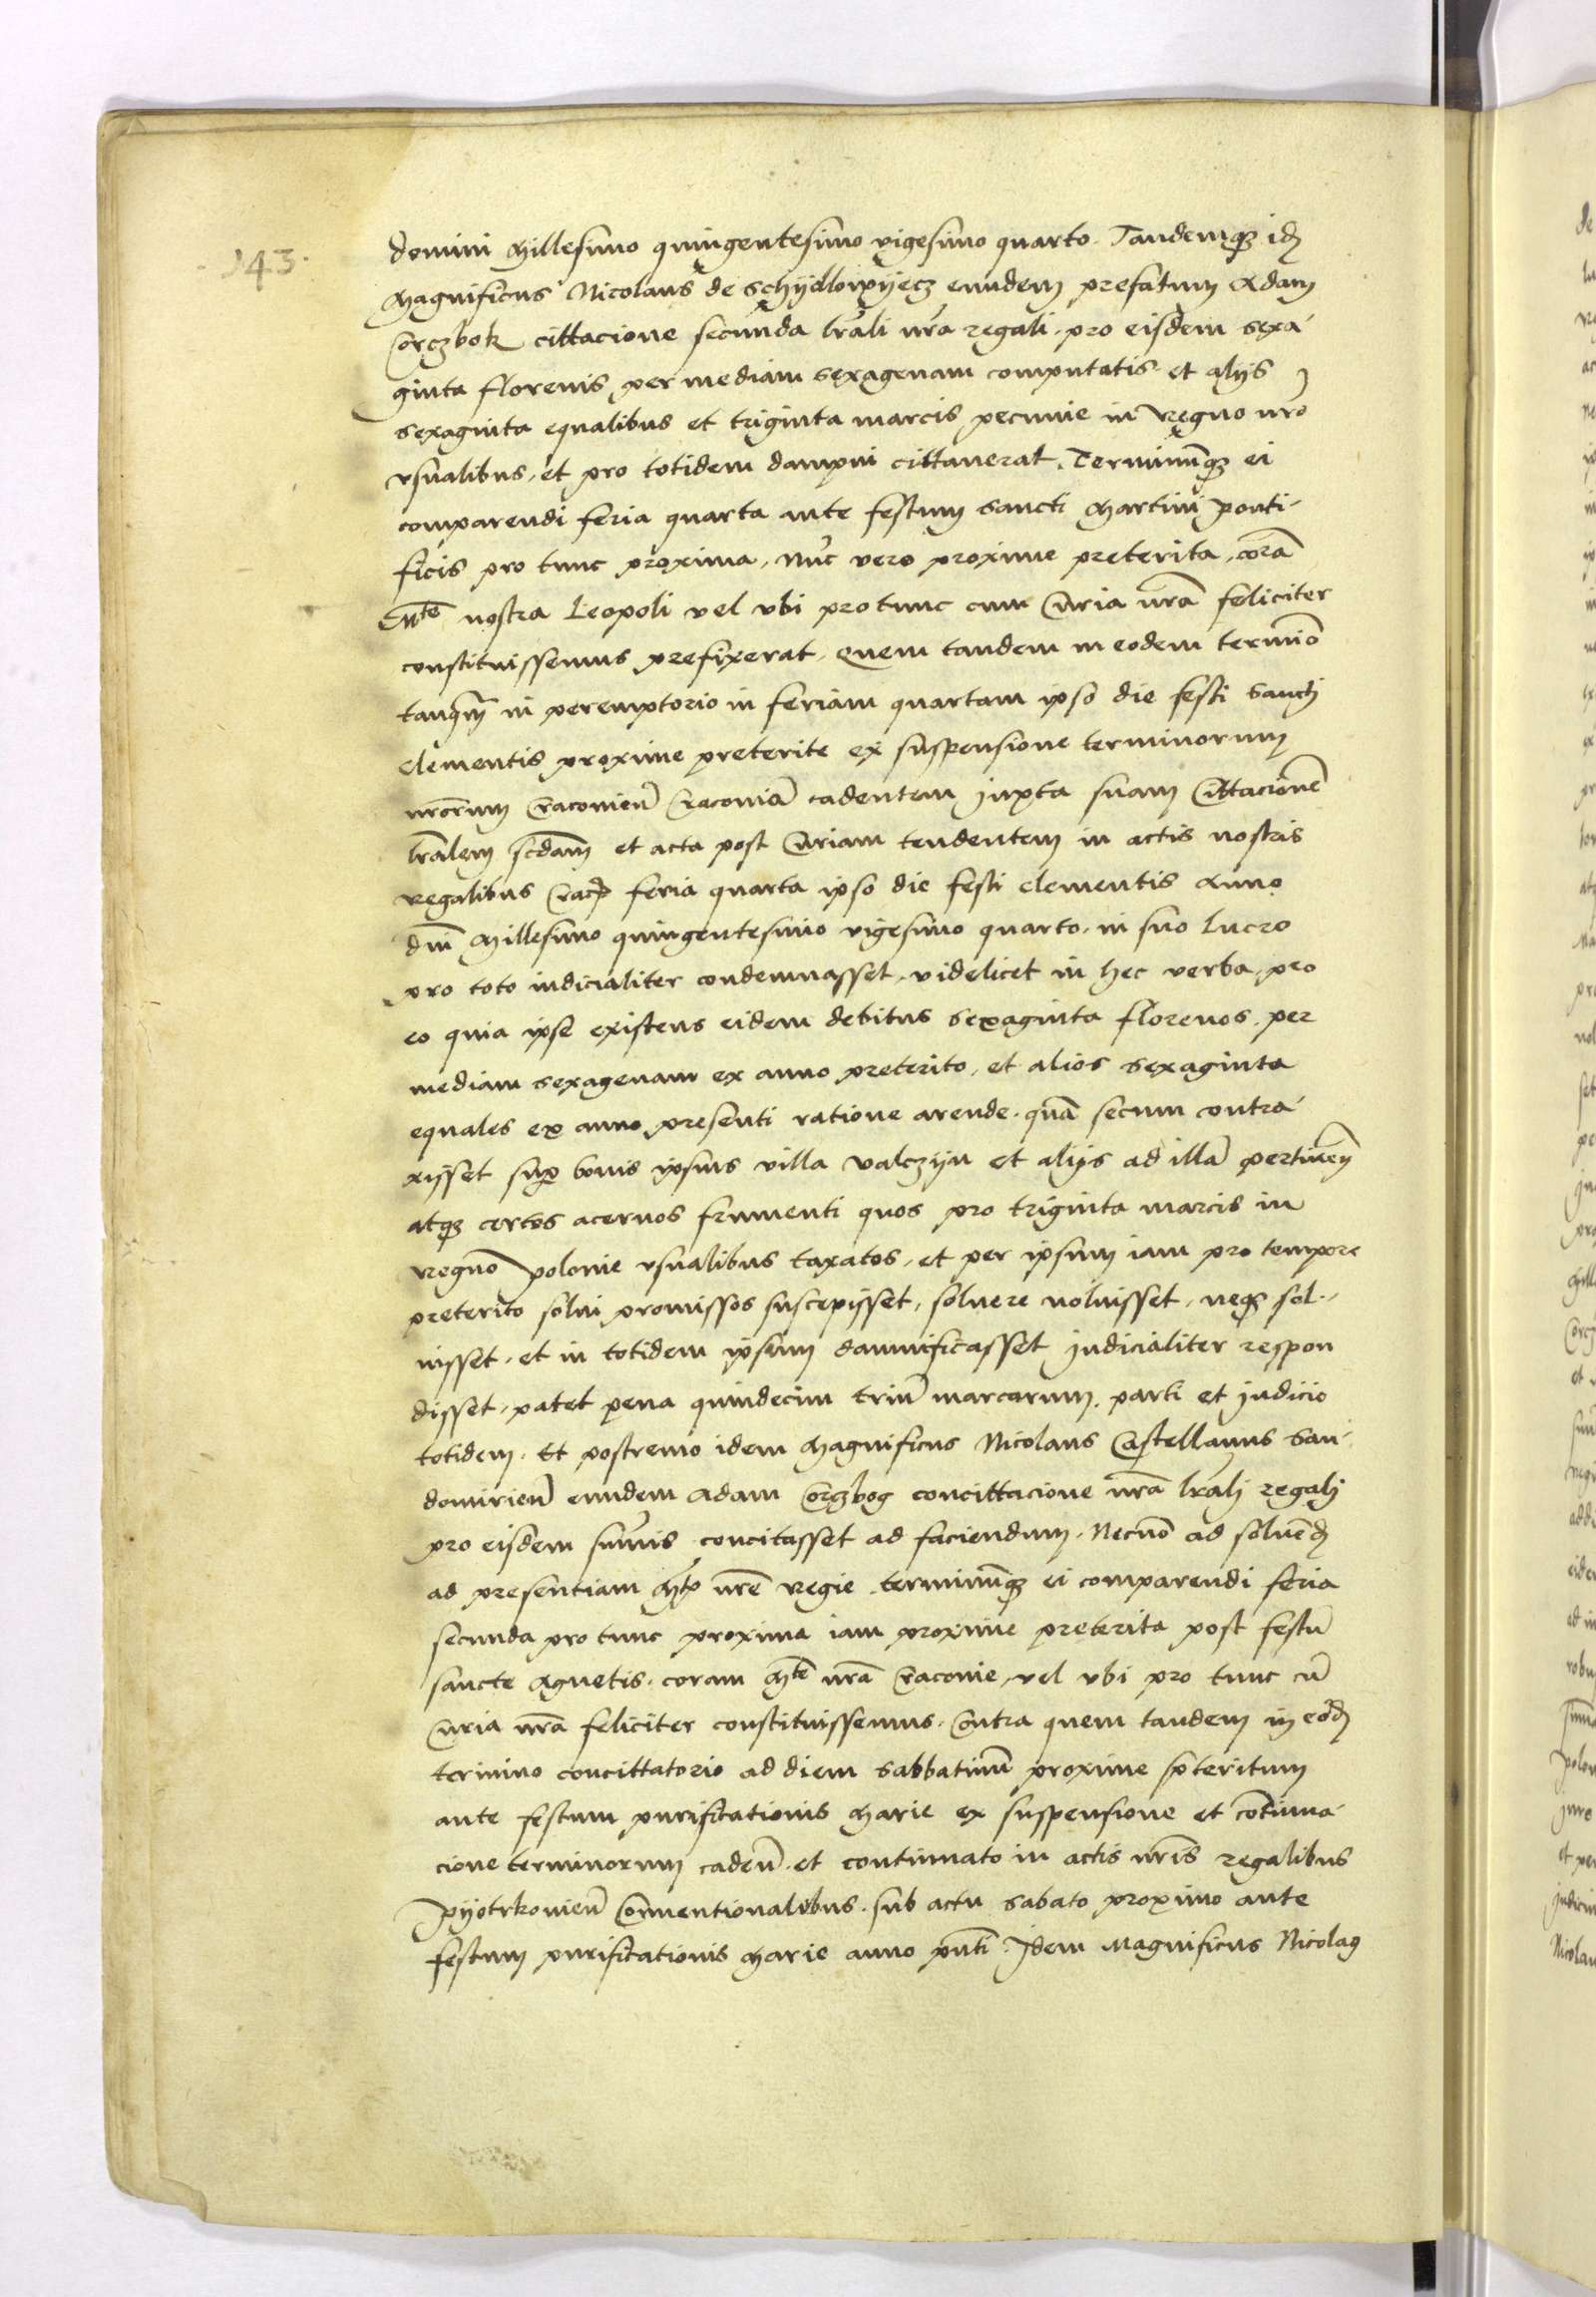 143.
domini Millesimo quingentesimo vigesimo quarto. Tandemqȝ idē
Magnificus Nicolaus de Schijdlowyecz eundem prefatum Adam
Corczbok cittacione secunda lrāli nrā regali. pro eisdem sexa-
ginta florenis per mediam sexagenam computatis et alijs
sexaginta equalibus et triginta marcis pecunie in Regno nrō
vsualibus, et pro totidem dampni cittauerat. Terminūqȝ ei
comparendi feria quarta ante festum sancti Martini ponti-
ficis pro tunc proxima, nūc vero proxime preterita, corā
Mte nostra Leopoli vel vbi pro tunc cum Curia nrā feliciter
constituissemus prefixerat. Quem tandem in eodem termīo
tanqm̄ in peremptorio in feriam quartam ipso die festi sancti
clementis proxime preterite ex suspensione terminorum
nrōrum Cracovień Cracoviā cadentem juxta suam Cittacionē
lrālem scdām et acta post Curiam tendentem in actis nostris
regalibus Crac feria quarta ipso die festi clementis Anno
dni Millesimo quingentesimo vigesimo quarto. in suo Lucro
pro toto iudicialiter condemnasset, videlicet in hec verba, pro
eo quia ipse existens eidem debitus sexaginta florenos. per
mediam sexagenam ex anno preterito, et alios sexaginta
equales ex anno presenti ratione arende. quā secum contra-
xisset sup bonis ipsius villa valczyn et alijs ad illā pertineñ
atqȝ certos aceruos frumenti quos pro triginta marcis in
Regno polonie vsualibus taxatos, et per ipsum iam pro tempore
preterito solui promissos suscepisset, soluere noluisset, neqȝ sol-
uisset, et in totidem ipsum damnificasset judicialiter respon
disset, patet pena quindecim triū marcarum. parti et judicio
totidem. Et postremo idem Magnificus Nicolaus Castellanus San-
domirień eundem Adam Corczbog concittacione nrā lrālj regalj
pro eisdem summis concitasset ad faciendum. Necnō ad soluēdū
ad presentiam Mtis nrē regie terminūqȝ ei comparendi feria
secunda pro tunc proxima iam proxime preterita post festū
sancte Agnetis. coram Mte nrā Cracovie, vel vbi pro tunc cū
Curia nrā feliciter constituissemus. Contra quem tandem in eodē
termino concittatorio ad diem sabbatinū proxime pteritum
ante festum purificationis Marie ex suspensione et cōtinua-
cione terminorum cadeñ. et continuato in actis nrīs regalibus
Pyotrkovień Conuentionalibus. sub actu sabato proximo ante
festum purificationis Marie anno pñti Jdem Magnificus Nicolaꝰ